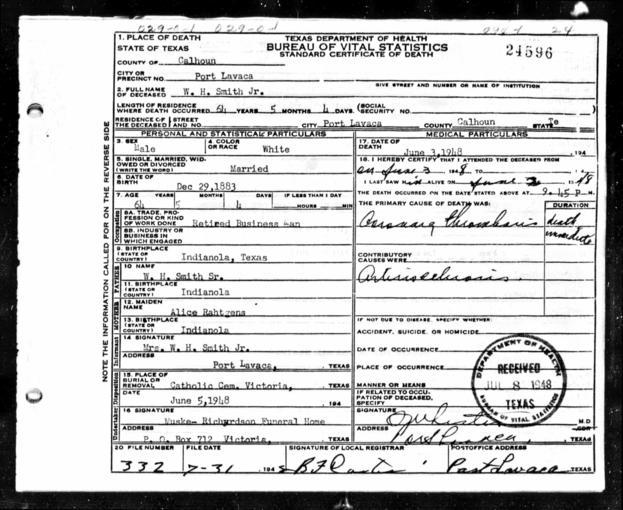 029-0-1 029-0-1
24
1. PLACE OF DEATH
STATE OF TEXAS
TEXAS DEPARTMENT OF HEALTH
BUREAU OF VITAL STATISTICS
STANDARD CERTIFICATE OF DEATH
24596
COUNTY OF Calhoun
CITY OR PRECINCT NO. Port Lavaca
GIVE STREET AND NUMBER OR NAME OF INSTITUTION
2. FULL NAME OF DECEASED W. H. Smith Jr.
LENGTH OF RESIDENCE WHERE DEATH OCCURRED 64 YEARS 5 MONTHS 4 DAYS (SOCIAL SECURITY NO. )
RESIDENCE OF THE DECEASED STREET AND NO. CITY Port Lavaca COUNTY Calhoun STATE Te
NOTE THE INFORMATION CALLED FOR ON THE REVERSE SIDE
PERSONAL AND STATISTICAL PARTICULARS
3. SEX Male
4. COLOR OR RACE White
5. SINGLE, MARRIED, WIDOWED OR DIVORCED (WRITE THE WORD) Married
6. DATE OF BIRTH Dec 29,1883
7. AGE YEARS MONTHS DAYS IF LESS THAN 1 DAY
64 5 4 HOURS MIN
Occupation
8A. TRADE, PROFESSION OR KIND OF WORK DONE Retired Business Man
8B. INDUSTRY OR BUSINESS IN WHICH ENGAGED
9. BIRTHPLACE (STATE OR COUNTRY) Indianola, Texas
FATHER
10 NAME W. H. Smith Sr.
11. BIRTHPLACE (STATE OR COUNTRY) Indianola
MOTHER
12. MAIDEN NAME Alice Rahtgens
13. BIRTHPLACE (STATE OR COUNTRY) Indianola
Informant
14 SIGNATURE Mrs. W. H. Smith Jr.
ADDRESS Port Lavaca, TEXAS
Disposition
15. PLACE OF BURIAL OR REMOVAL Catholic Cem. Victoria, TEXAS
DATE June 5,1948 194
Undertaker
16 SIGNATURE Muske- Richyrdson Funeral Home
ADDRESS P. O. Box 712 Victoria, TEXAS
MEDICAL PARTICULARS
17. DATE OF DEATH June 3,1948 194
18. I HEREBY CERTIFY THAT I ATTENDED THE DECEASED FROM
on June 3 1948 TO 194
I LAST SAW ALIVE ON June 3 1948
THE DEATH OCCURRED ON THE DATE STATED ABOVE AT 9:45 P M.
THE PRIMARY CAUSE OF DEATH WAS: DURATION
Coronary Thrombosis death immediate
CONTRIBUTORY CAUSES WERE
Arteriosclerosis.
IF NOT DUE TO DISEASE, SPECIFY WHETHER:
ACCIDENT, SUICIDE, OR HOMICIDE
DATE OF OCCURRENCE
PLACE OF OCCURRENCE
MANNER OR MEANS
IF RELATED TO OCCUPATION OF DECEASED, SPECIFY
DEPARTMENT OF HEALTH
RECEIVED
JUL 8 1948
TEXAS
BUREAU OF VITAL STATISTICS
SIGNATURE M.D
ADDRESS Port Lavaca TEXAS
20 FILE NUMBER FILE DATE SIGNATURE OF LOCAL REGISTRAR POSTOFFICE ADDRESS
332 7-31 1948 Port Lavaca TEXAS